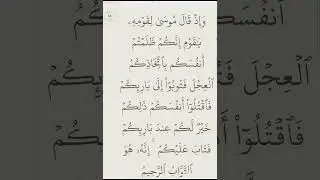 وَإِذْ قَالَ مُوسَىٰ لِقَوْمِهِۦ
يَـٰقَوْمِ إِنَّكُمْ ظَلَمْتُمْ
أَنفُسَكُم بِٱتِّخَاذِكُمُ
ٱلْعِجْلَ فَتُوبُوٓا۟ إِلَىٰ بَارِئِكُمْ
فَٱقْتُلُوٓا۟ أَنفُسَكُمْ ذَٰلِكُمْ
خَيْرٌ لَّكُمْ عِندَ بَارِئِكُمْ
فَتَابَ عَلَيْكُمْ ۚ إِنَّهُۥ هُوَ
ٱلتَّوَّابُ ٱلرَّحِيمُ